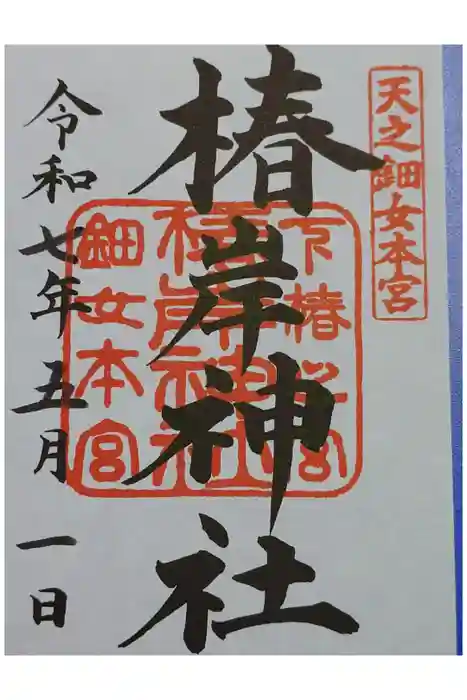 天之鈿女本宮
椿岸神社
鈿女本宮
令和七年五月一日